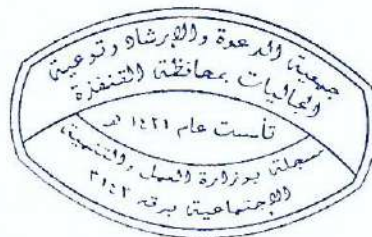 جمعية الدعوة والإرشاد وتوعية
الجاليات بمحافظة القنفذة
تأسست عام ١٤٢١ هـ
مسجلة بوزارة العمل والتنمية
الاجتماعية برقم ٣١٤٣